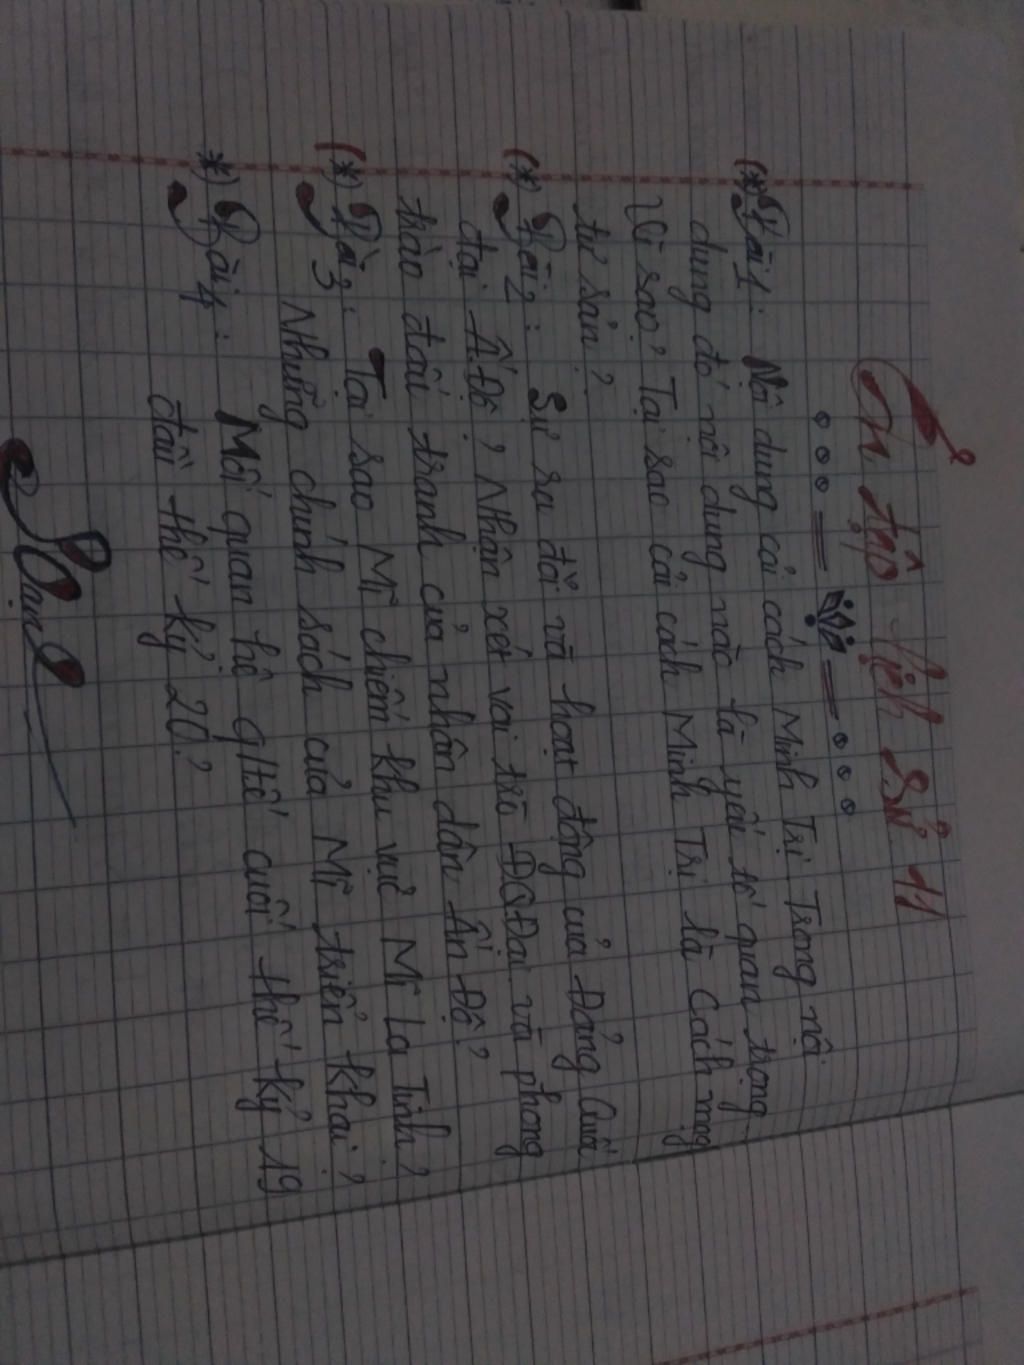 Ôn tập lịch sử 11
(*) Bài 1: Nội dung cải cách Minh Trị. Trong nội
dung đó nội dung nào là yếu tố quan trọng
Vì sao? Tại sao cải cách Minh Trị là Cách mạng
tư sản?
(*) Bài 2: Sự ra đời và hoạt động của Đảng Quốc
đại Ấ.Độ? Nhận xét vai trò ĐQĐại và phong
trào đấu tranh của nhân dân Ấn Độ?
(*) Bài 3: Tại sao Mĩ chiếm khu vực Mĩ La Tinh?
Những chính sách của Mĩ triển khai?
*) Bài 4: Mối quan hệ q/tế cuối thế kỷ 19
đầu thế kỷ 20?